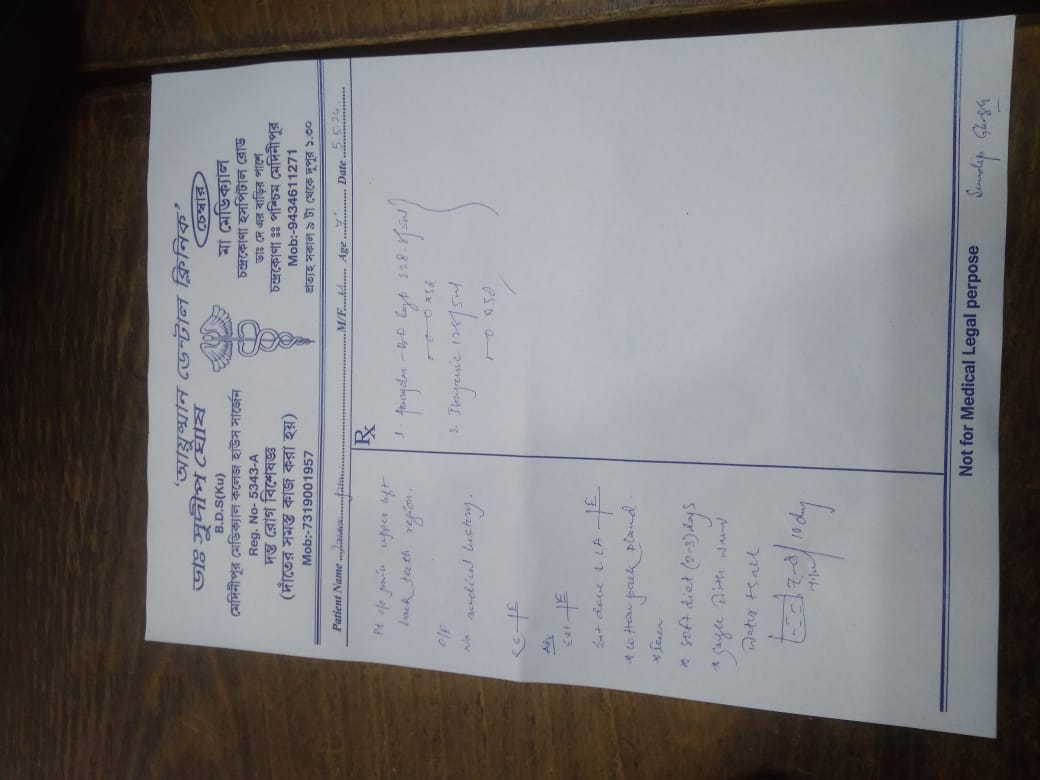 'আয়ুষ্মান ডেন্টাল ক্লিনিক'
ডাঃ সুদীপ ঘোষ
B.D.S(Ku)
মেদিনীপুর মেডিক্যাল কলেজ হাউস সার্জেন
Reg. No- 5343-A
দন্ত রোগ বিশেষজ্ঞ
(দাঁতের সমস্ত কাজ করা হয়)
Mob:-7319001957
চেম্বার
মা মেডিক্যাল
চন্দ্রকোণা হসপিটাল রোড
ডাঃ দে এর বাড়ির পাশে
চন্দ্রকোণা ঃঃ পশ্চিম মেদিনীপুর
Mob:-9434611271
প্রত্যহ সকাল ৯ টা থেকে দুপুর ১.৩০
Patient Name M/F Age Date 5.5.24
Pt c/o pain upper left
back teeth region.
O/E
No medical history.
Adv
Ext
Ext done LA
* cotton pack placed
* soft diet (2-3) days
* gargle with warm
water + salt
10 day
Rx
1. 228.5/5ml
2. /5ml
Not for Medical Legal perpose
Sudip Ghosh